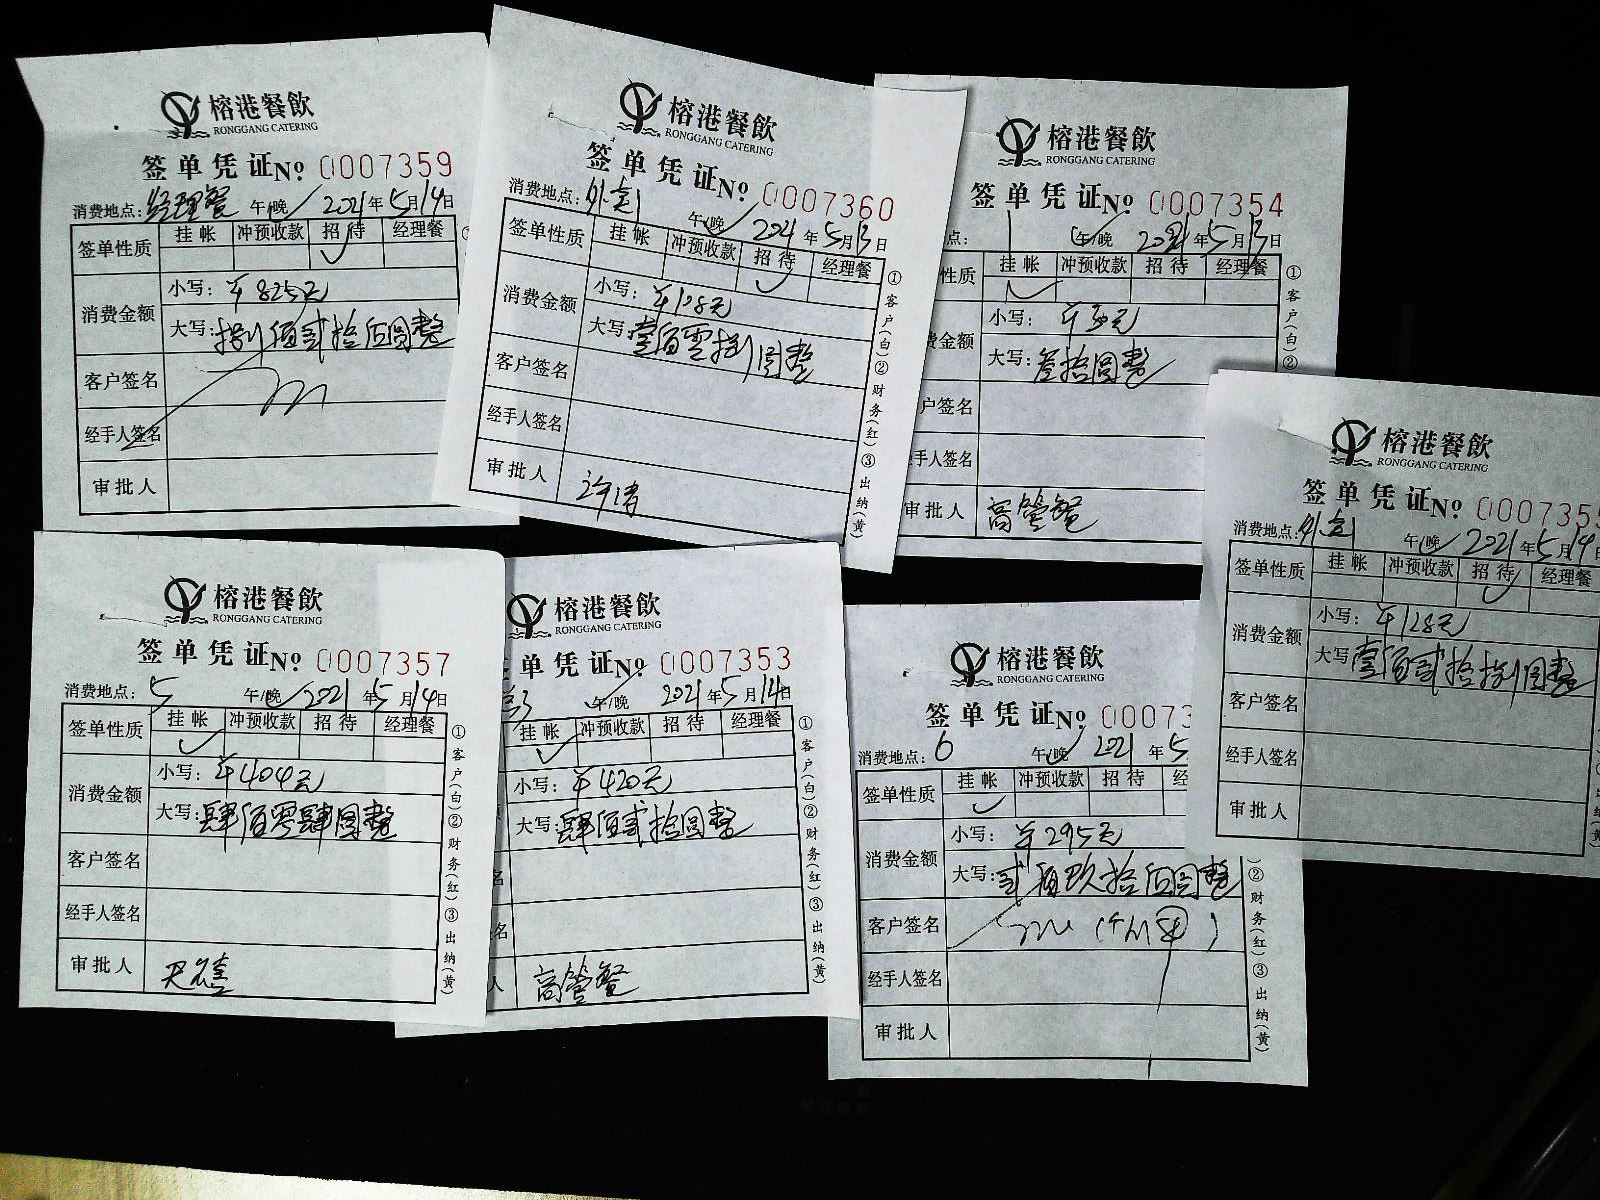 榕港餐飲
RONGGANG CATERING
签单凭证No 0007359
消费地点：经理餐 午/晚 2021年5月14日
签单性质 挂帐 冲预收款 招待 经理餐
消费金额
小写：￥825元
大写：捌佰贰拾伍圆整
客户签名
经手人签名
审批人
榕港餐飲
RONGGANG CATERING
签单凭证No 0007360
消费地点：外卖 午/晚 2021年5月13日
签单性质 挂帐 冲预收款 招待 经理餐
消费金额
小写：￥128元
大写：壹佰零捌圆整
客户签名
经手人签名
审批人
①客户(白)②财务(红)③出纳(黄)
榕港餐飲
RONGGANG CATERING
签单凭证No 0007354
点： 午/晚 2021年5月13日
性质 挂帐 冲预收款 招待 经理餐
费金额
小写：￥30元
大写：叁拾圆整
户签名
手人签名
审批人 高管餐
①客户(白)②
榕港餐飲
RONGGANG CATERING
签单凭证No 0007355
消费地点：外卖 午/晚 2021年5月14日
签单性质 挂帐 冲预收款 招待 经理餐
消费金额
小写：￥128元
大写 壹佰贰拾捌圆整
客户签名
经手人签名
审批人
榕港餐飲
RONGGANG CATERING
签单凭证No 0007357
消费地点：5 午/晚 2021年5月14日
签单性质 挂帐 冲预收款 招待 经理餐
消费金额
小写：￥404元
大写：肆佰零肆圆整
客户签名
经手人签名
审批人
①客户(白)②财务(红)③出纳(黄)
榕港餐飲
RONGGANG CATERING
单凭证No 0007353
午/晚 2021年5月14日
挂帐 冲预收款 招待 经理餐
小写：￥420元
大写：肆佰贰拾圆整
名
名
人 高管餐
①客户(白)②财务(红)③出纳(黄)
榕港餐飲
RONGGANG CATERING
签单凭证No 00073
消费地点：6 午/晚 2021年5
签单性质 挂帐 冲预收款 招待 经
消费金额
小写：￥295元
大写：贰佰玖拾伍圆整
客户签名
经手人签名
审批人
②财务(红)③出纳(黄)